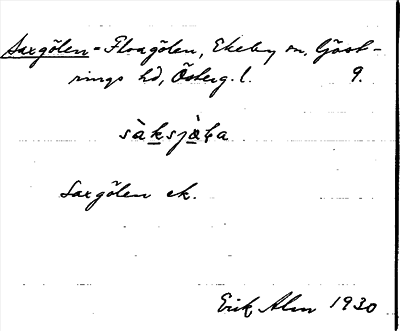 Saxgölen = Floagölen, Ekeby sn, Göst-
rings hd, Österg. l. 9.
sàksjø̀ɫa
Saxgölen ek.
Erik Alm 1930